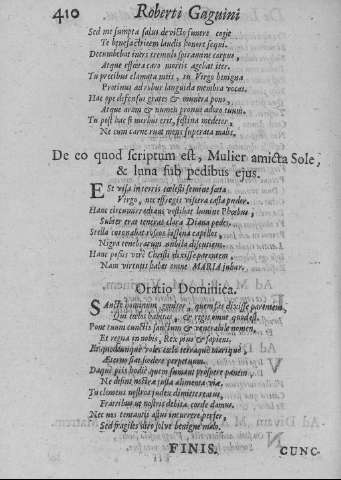 410 Roberti Gaguini
Sed me sumpta salus devicto funere cogit
Te benefactricem laudis honore sequi.
Decumbebat iners tremulo spiramine corpus,
Atque effœta caro mortis agebat iter.
Tu precibus clamata meis, ex Virgo benigna
Protinus ad robur languida membra vocas.
Hac ope defensus grates & munera pono,
Atque aram & numen pronus adoro tuum.
Tu post hac si morbus erit, festina mederi,
Ne cum carne ruat mens superata malis.
De eo quod scriptum est, Mulier amicta Sole,
& luna sub pedibus ejus.
Est visa in terris cœlesti semine fœta
Virgo, nec effregit viscera casta pudor.
Hanc circumvestiens vestibat lumine Phœbus,
Subter erat teneras clara Diana pedes.
Stella coronabat capillos,
Nigra tenebrarum nubila discutiens.
Hanc possis vere Christi dixisse parentem,
Nam virtutis habet omne MARIA jubar.
Oratio Dominica.
Sancte hominum genitor, quem fas dixisse parentem,
Qui cœlos habitas, & regis omne quod est.
Pone tuum cunctis sanctum & venerabile nomen,
Et regna in nobis, Rex pius & sapiens.
Et quodcumque voles cœlo terraque marique,
Æterno fiat fœdere perpetuum.
Daque pils hodie quem sumant prospere panem
Ne desint nostræ justa alimenta viæ.
Tu clemens nostros judex dimitte reatus,
Fratribus ut nostris debita corde damus.
Nec nos tentantis ausus incurrere perfer,
Sed fragiles libro solve benigne malo.
FINIS.
CUNC-